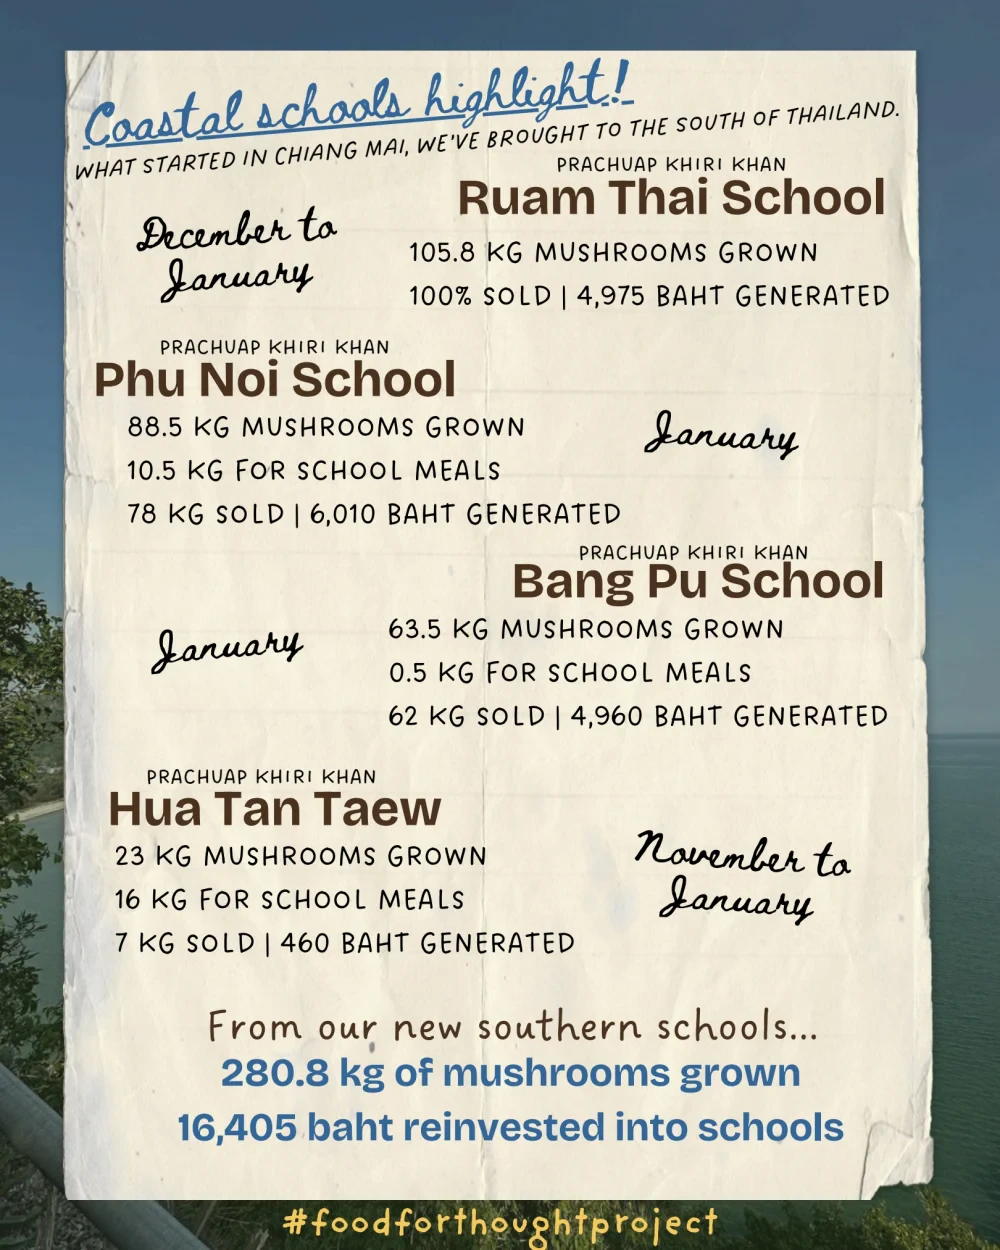 Coastal schools highlight!
WHAT STARTED IN CHIANG MAI, WE'VE BROUGHT TO THE SOUTH OF THAILAND.
PRACHUAP KHIRI KHAN
Ruam Thai School
December to
January
105.8 KG MUSHROOMS GROWN
100% SOLD | 4,975 BAHT GENERATED
PRACHUAP KHIRI KHAN
Phu Noi School
88.5 KG MUSHROOMS GROWN
10.5 KG FOR SCHOOL MEALS
78 KG SOLD | 6,010 BAHT GENERATED
January
PRACHUAP KHIRI KHAN
Bang Pu School
January
63.5 KG MUSHROOMS GROWN
0.5 KG FOR SCHOOL MEALS
62 KG SOLD | 4,960 BAHT GENERATED
PRACHUAP KHIRI KHAN
Hua Tan Taew
23 KG MUSHROOMS GROWN
16 KG FOR SCHOOL MEALS
7 KG SOLD | 460 BAHT GENERATED
November to
January
From our new southern schools...
280.8 kg of mushrooms grown
16,405 baht reinvested into schools
#foodforthoughtproject